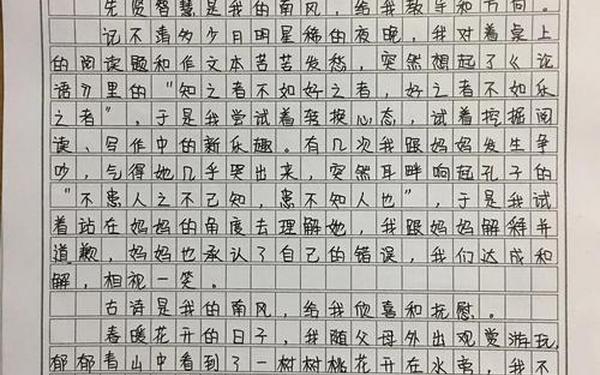 先贤智慧是我的南风，给我教导和方向。
记不清多少月明星稀的夜晚，我对着桌上
的阅读题和作文本苦苦发愁，突然想起了《论
语》里的“知之者不如好之者，好之者不如乐
之者”，于是我尝试着转换心态，试着挖掘阅
读、写作中的新乐趣。有几次我跟妈妈发生争
吵，气得她几乎哭出来，突然耳畔响起孔子的
“不患人之不己知，患不知人也”，于是我试
着站在妈妈的角度去理解她，我跟妈妈解释并
道歉，妈妈也承认了自己的错误，我们达成和
解，相视一笑。
古诗是我的南风，给我欣喜和抚慰。
春暖花开的日子，我随父母外出观赏游玩，
郁郁青山中看到了一树树桃花开在水旁，我不